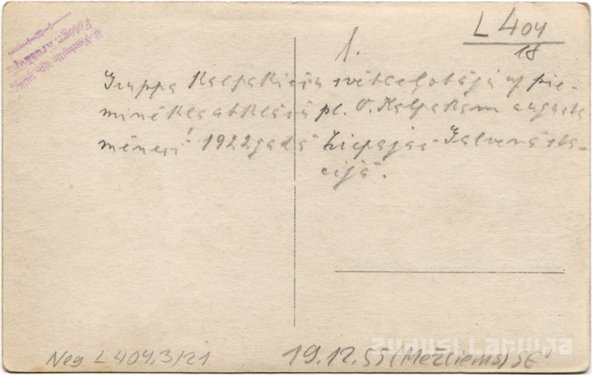 L 404
18
1.
Gruppa Kalpakiešu svētceļotāju uz pie-
minēkļa atklāšu pl. O. Kalpakam augusta
mēnesī 1922 gadā Liepajas-Galvenā sta-
cijā.
Neg. L 404.3/21
19.12.55 (Mežciems) SE
ZUDUSI LATVIJA